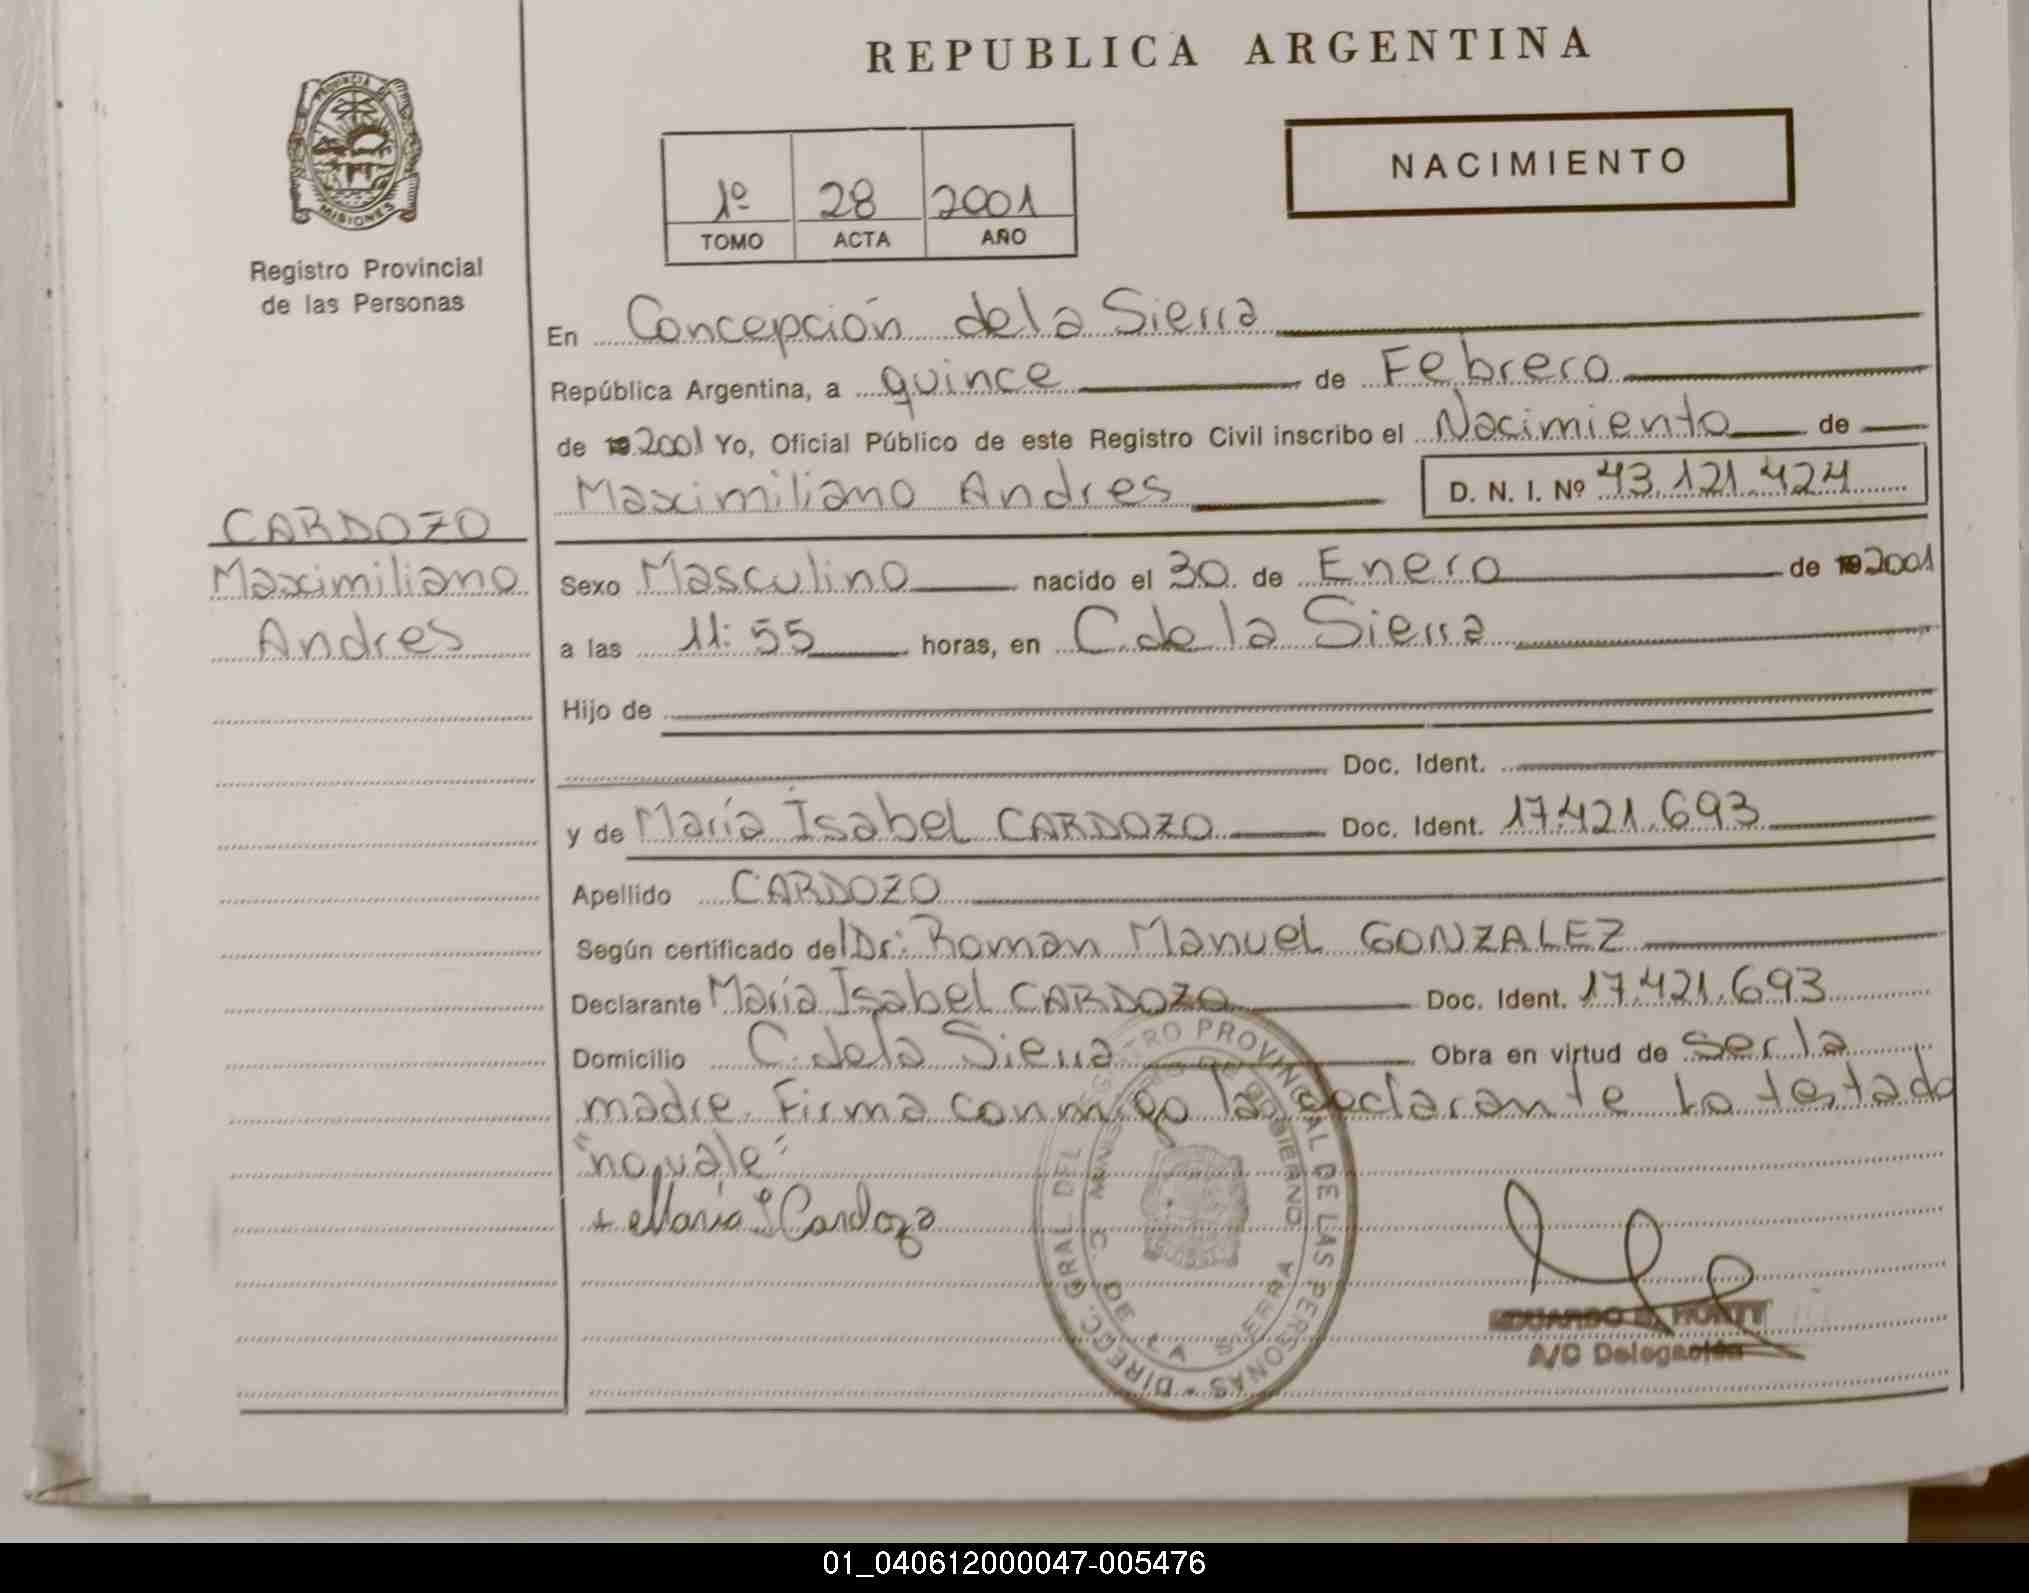 REPUBLICA ARGENTINA
PROVINCIA DE MISIONES
Registro Provincial
de las Personas
NACIMIENTO
1º 28 2001
TOMO ACTA AÑO
En Concepción de la Sierra
República Argentina, a quince de Febrero
de 19 2001 Yo, Oficial Público de este Registro Civil inscribo el Nacimiento de
Maximiliano Andres D. N. I. Nº 43.121.424
CARDOZO
Maximiliano
Andres
Sexo Masculino nacido el 30 de Enero de 19 2001
a las 11:55 horas, en C. de la Sierra
Hijo de
Doc. Ident.
y de María Isabel CARDOZO Doc. Ident. 17.421.693
Apellido CARDOZO
Según certificado del Dr: Roman Manuel GONZALEZ
Declarante María Isabel CARDOZO Doc. Ident. 17.421.693
Domicilio C. de la Sierra Obra en virtud de ser la
madre. Firma conmigo la declarante Lo testado
"no vale"
+ Maria I Cardozo
DIRECC. GRAL. DEL REGISTRO PROVINCIAL DE LAS PERSONAS
MINISTERIO DE GOBIERNO
C. DE LA SIERRA
EDUARDO
A/C Delegación
01_040612000047-005476